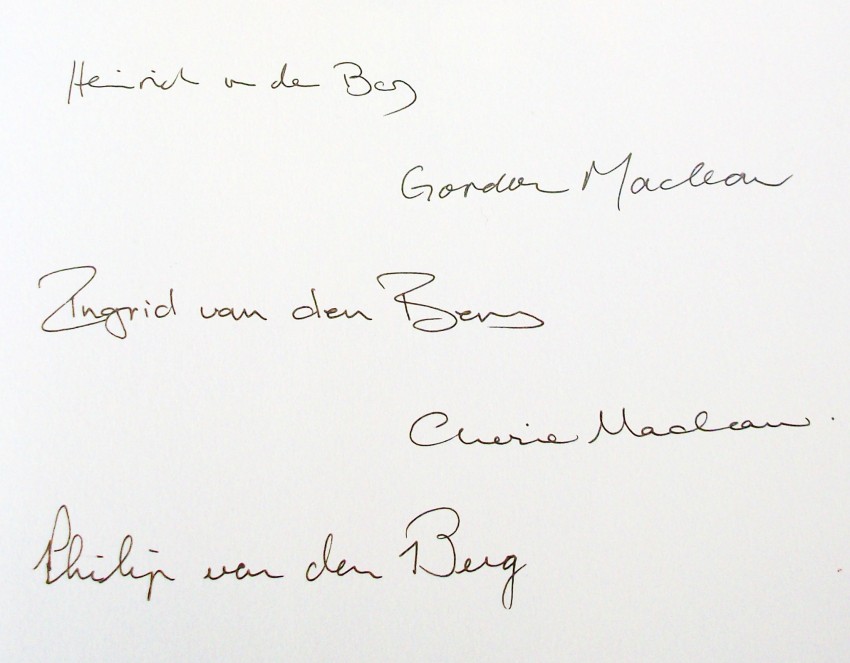 Heinrich van den Berg
Gordon Maclean
Ingrid van den Berg
Cherie Maclean.
Philip van den Berg